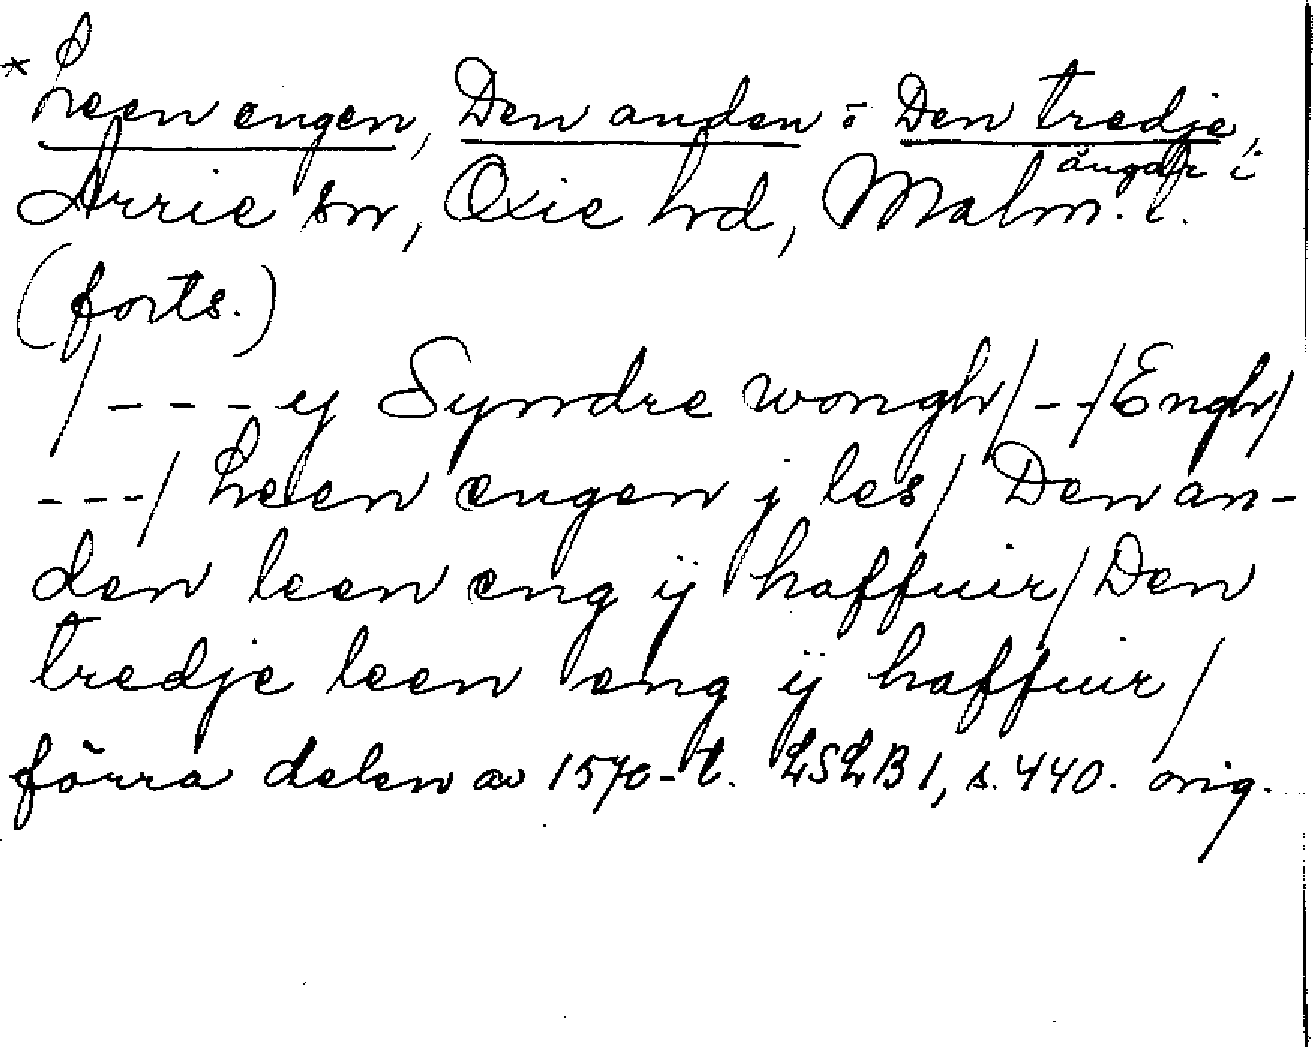 * Leen engen, Den anden o Den tredje,
ängar i
Arrie sn, Oxie hd, Malm. l.
(forts.)
/ - - - y Syndre wongh / - - / Engh /
- - - / Leen engen j les / Den an-
den leen eng ij haffuir / Den
tredje leen eng ij haffuir /
förra delen av 1570-t. LSLB 1, s. 440. orig.